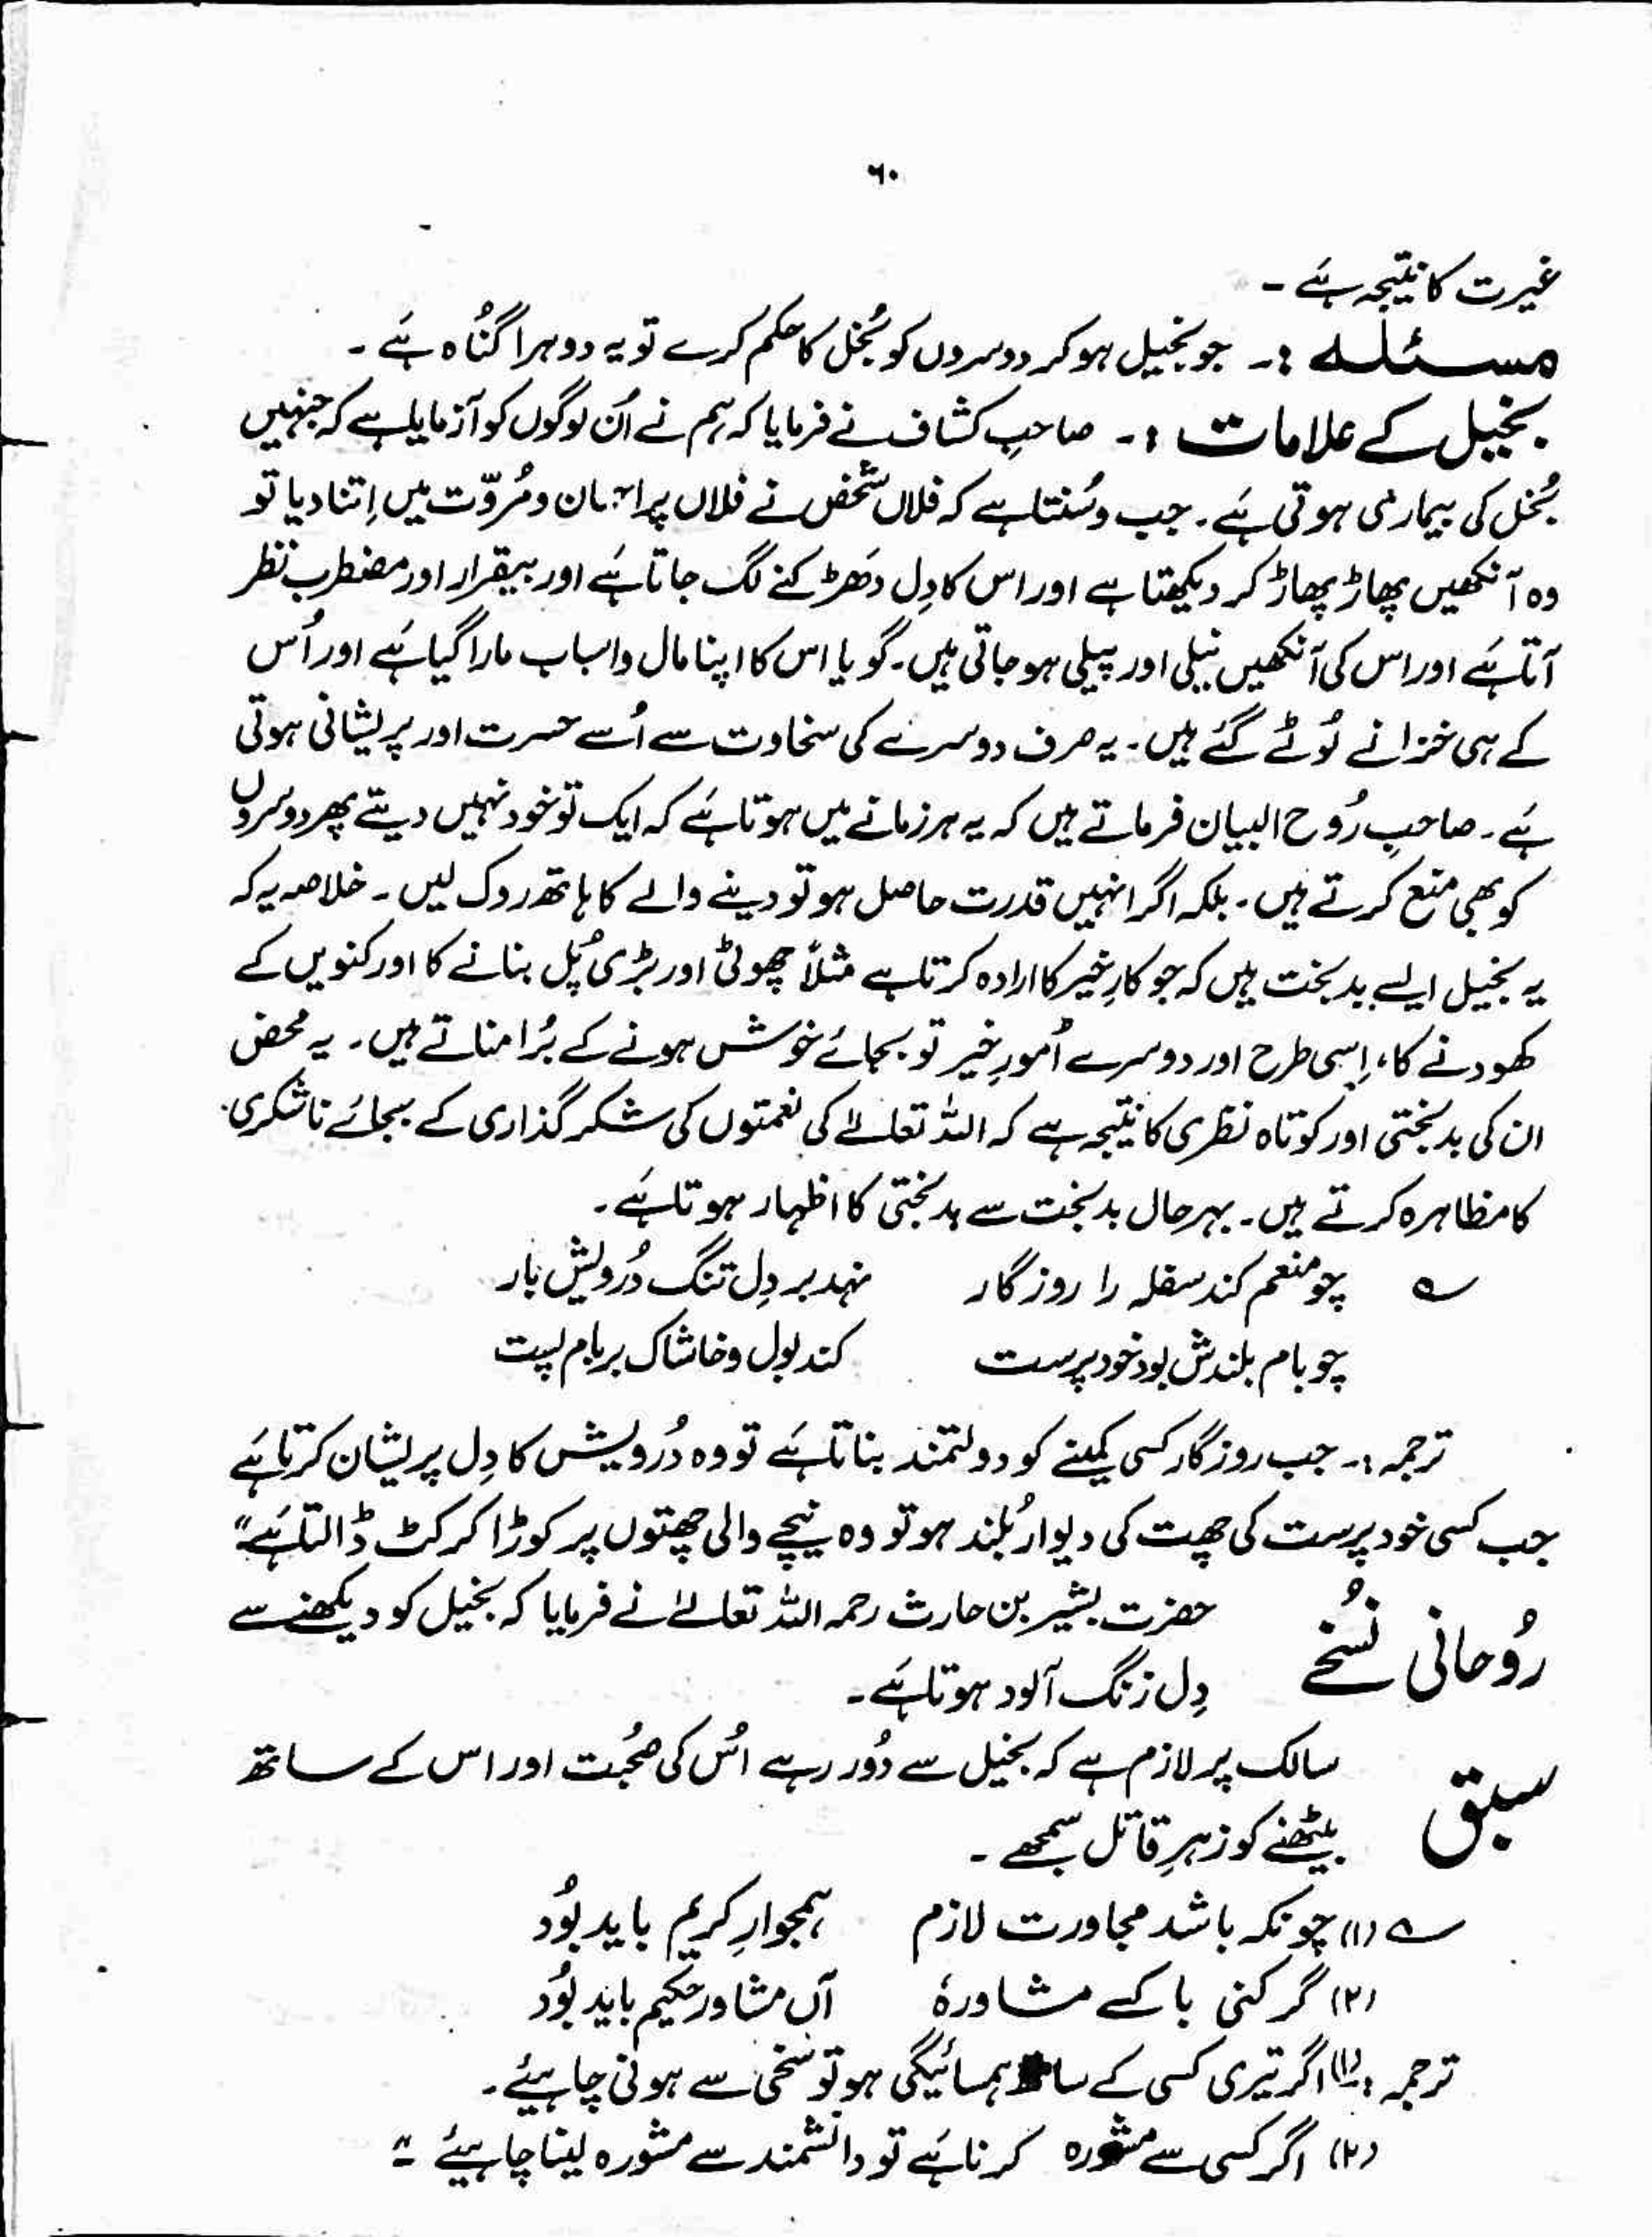 ۶۰
غیرت کا نتیجہ ہے ۔
مسئلہ :۔ جو بخیل ہو کر دوسروں کو بُخل کا حکم کرے تو یہ دوہرا گنُاہ ہے ۔
بخیل کے علامات :۔ صاحبِ کشاف نے فرمایا کہ ہم نے اُن لوگوں کو آزمایا ہے کہ جنہیں
بُخل کی بیماری ہوتی ہے ۔ جب وسُنتا ہے کہ فلاں شخص نے فلاں پر و مُروّت میں اِتنا دیا تو
وہ آنکھیں پھاڑ پھاڑ کر دیکھتا ہے اور اس کا دِل دَھڑکنے لگ جاتا ہے اور بیقرار اور مضطرب نظر
آتا ہے اور اس کی آنکھیں نیلی اور پیلی ہو جاتی ہیں ۔ گویا اس کا اپنا مال و اسباب مارا گیا ہے اور اُس
کے ہی خزانے لُوٹے گئے ہیں ۔ یہ صرف دوسرے کی سخاوت سے اُسے حسرت اور پریشانی ہوتی
ہے ۔ صاحبِ رُوح البیان فرماتے ہیں کہ یہ ہر زمانے میں ہوتا ہے کہ ایک تو خود نہیں دیتے پھر دوسروں
کو بھی منع کرتے ہیں ۔ بلکہ اگر انہیں قدرت حاصل ہو تو دینے والے کا ہاتھ روک لیں ۔ خلاصہ یہ کہ
یہ بخیل ایسے بدبخت ہیں کہ جو کارِ خیر کا ارادہ کرتا ہے مثلاً چھوٹی اور بڑی پُل بنانے کا اور کنویں کے
کھودنے کا، اِسی طرح اور دوسرے اُمورِ خیر تو بجائے خوش ہونے کے بُرا مناتے ہیں ۔ یہ محض
ان کی بدبختی اور کوتاہ نظری کا نتیجہ ہے کہ اللہ تعالےٰ کی نعمتوں کی شکر گذاری کے بجائے ناشکری
کا مظاہرہ کرتے ہیں ۔ بہرحال بدبخت سے بدبختی کا اظہار ہوتا ہے ۔
؎ چو منعم کند سفلہ را روزگار نہد بر دِل تنگ دُرویش بار
چو بام بلندش بود خود پرست کند بول و خاشاک بر بام پست
ترجمہ :۔ جب روزگار کسی کمینے کو دولتمند بناتا ہے تو وہ دُرویش کا دِل پریشان کرتا ہے
جب کسی خود پرست کی چھت کی دیوار بُلند ہو تو وہ نیچے والی چھتوں پر کوڑا کرکٹ ڈالتا ہے"
رُوحانی نُسخے حضرت بشیر بن حارث رحمہ اللہ تعالےٰ نے فرمایا کہ بخیل کو دیکھنے سے
دِل زنگ آلود ہوتا ہے ۔
سبق سالک پر لازم ہے کہ بخیل سے دُور رہے اُس کی صُحبت اور اس کے ساتھ
بیٹھنے کو زہرِ قاتل سمجھے ۔
؎ (۱) چونکہ باشد مجاورت لازم ہمجوارِ کریم باید بوُد
(۲) گر کنی با کسے مشاورۂ آں مشاور حکیم باید بوُد
ترجمہ :۔ (۱) اگر تیری کسی کے ہمسائیگی ہو تو سخی سے ہونی چاہیئے ۔
(۲) اگر کسی سے مشورہ کرنا ہے تو دانشمند سے مشورہ لینا چاہیئے ۔"